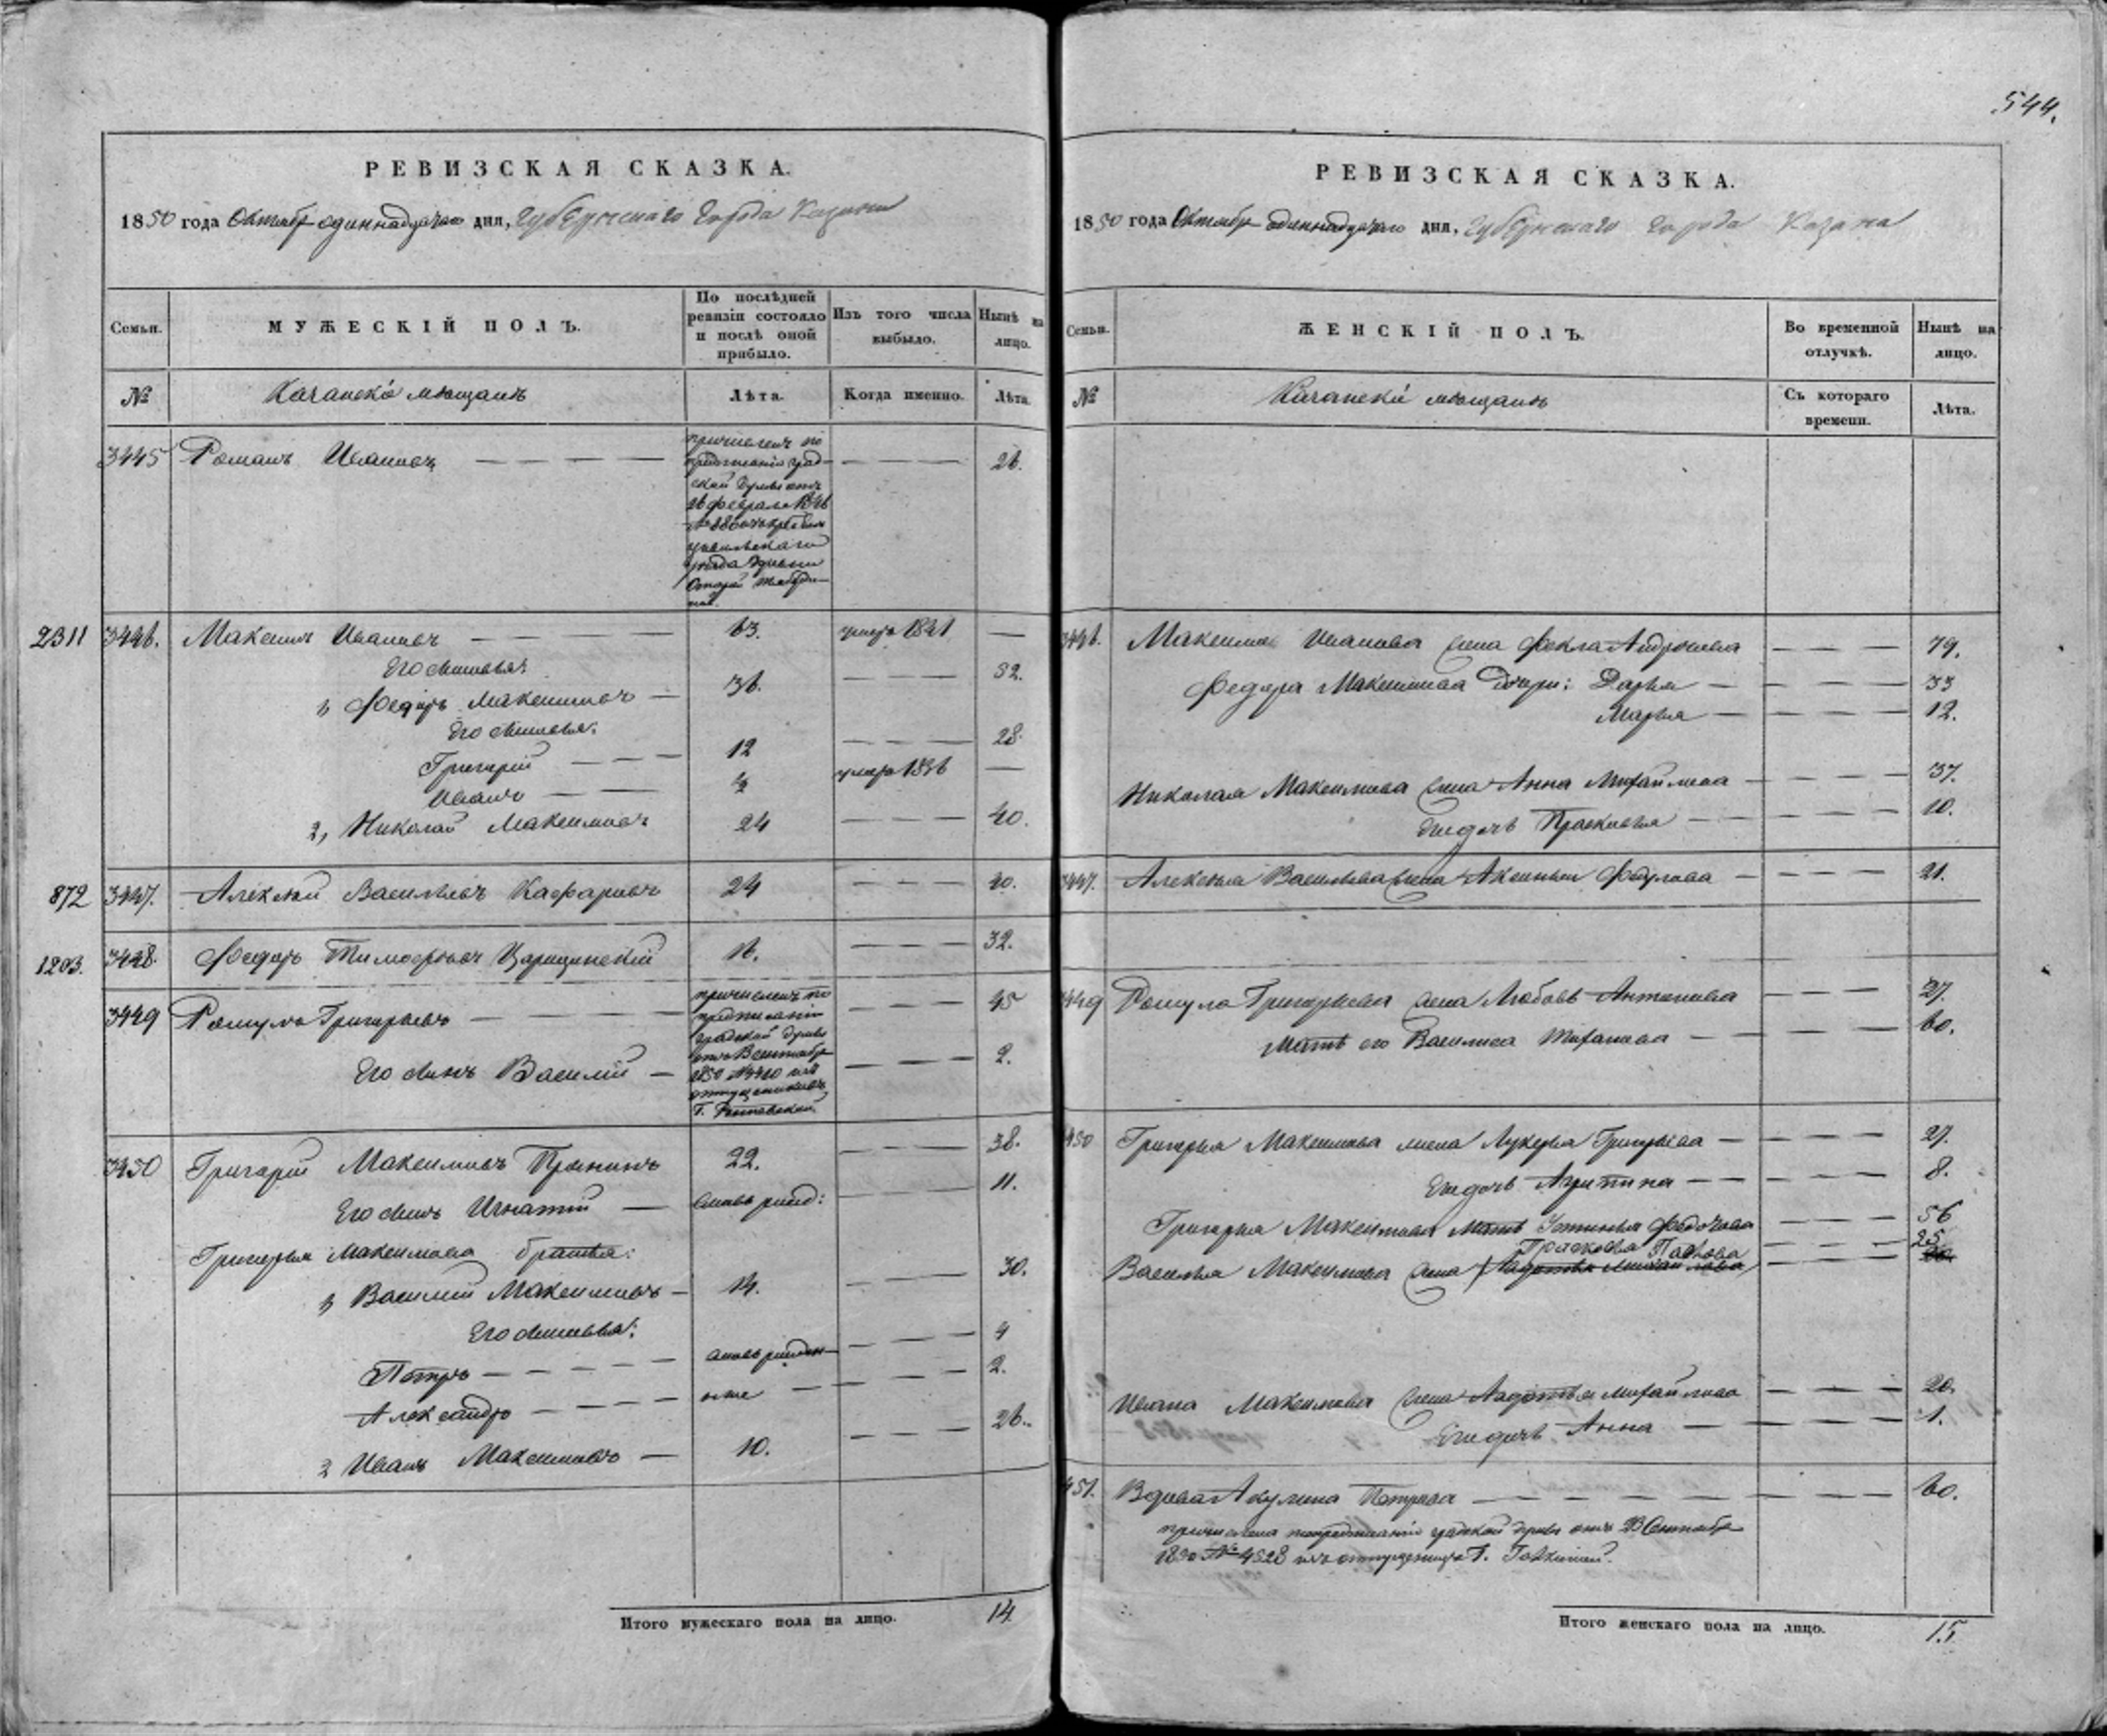 544.
РЕВИЗСКАЯ СКАЗКА.
1850 года Октября одиннадцатого дня, Губернского города Казани
Семьи. МУЖЕСКІЙ ПОЛЪ. По послѣдней ревизіи состояло и послѣ оной прибыло. Изъ того числа выбыло. Нынѣ на лицо.
№ Казанскіе мѣщане Лѣта. Когда именно. Лѣта.
3445 Романъ Ивановъ 26.
причисленъ по
предписанію град-
ской Думы отъ
26 февраля
уѣзда деревни
Старой
2311 3446. Максимъ Ивановъ 63. умеръ 1841
Его сыновья:
1, Федоръ Максимовъ 36. 52.
Его сыновья:
Григорій 12 28.
Иванъ умеръ 1836
2, Николай Максимовъ 24 40.
872 3447. Алексѣй Васильевъ 24 40.
1203. 3448. Федоръ Тимофеевъ Царицинскій 16. 32.
3449 Ромулъ Григорьевъ 45
причисленъ по
предписанію
градской Думы
отъ Сентября
1850 изъ
отпущенниковъ
Его сынъ Василій 2.
3450 Григорій Максимовъ 22. 38.
Его сынъ Игнатій вновь рожд: 11.
Григорья Максимова братья:
1, Василій Максимовъ 14. 30.
Его сыновья:
Петръ вновь рожден 4
Александръ 2.
2 Иванъ Максимовъ 10. 26.
Итого мужескаго пола на лицо. 14
РЕВИЗСКАЯ СКАЗКА.
1850 года Октября одиннадцатого дня, Губернского города Казани
Семьи. ЖЕНСКІЙ ПОЛЪ. Во временной отлучкѣ. Нынѣ на лицо.
№ Казанскіе мѣщане Съ котораго времени. Лѣта.
3446. Максима Иванова жена Фекла Андреева 79.
Федора Максимова дочери: Дарья 33
Марья 12.
Николая Максимова жена Анна Михайлова 37.
Ево дочь Прасковья 10.
3447. Алексѣя Васильева жена Аксинья Федорова 21.
3449 Ромула Григорьева жена Любовь Антонова 27.
Мать его Василиса 60.
3450 Григорья Максимова жена Лукерья Григорьева 27.
Ево дочь 8.
Григорья Максимова мать Устинья Федотова 56
Прасковья Павлова 25
Василья Максимова жена Авдотья Михайлова
Ивана Максимова жена Авдотья Михайлова 20.
Ево дочь Анна 1.
3451. Вдова Акулина Петрова 60.
причислена по предписанію градской Думы отъ Сентября
1850 № 4528 изъ отпущенницъ Г.
Итого женскаго пола на лицо. 15